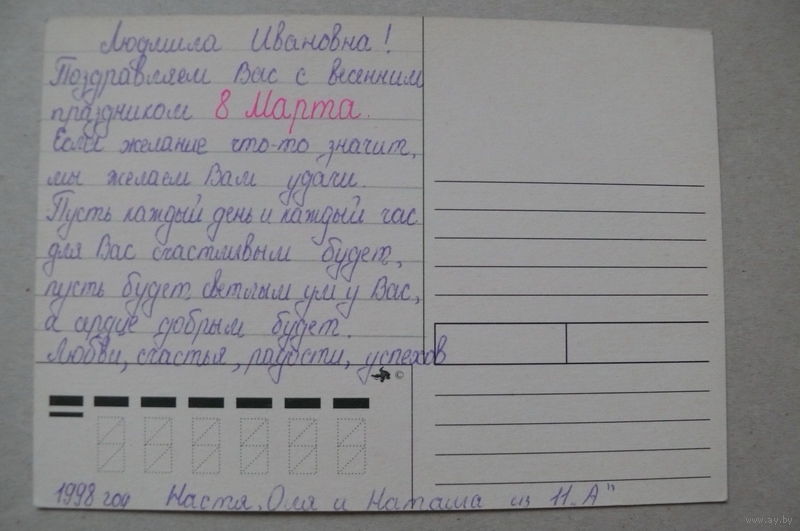 Людмила Ивановна!
Поздравляем Вас с весенним
праздником 8 Марта.
Если желание что-то значит,
мы желаем Вам удачи.
Пусть каждый день и каждый час
для Вас счастливым будет,
пусть будет светлым ум у Вас,
а сердце добрым будет.
Любви, счастья, радости, успехов
©
1998 год Настя, Оля и Наташа из 11 „А"
www.ay.by